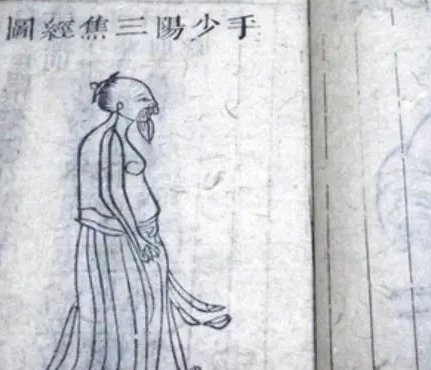 手少陽三焦經圖